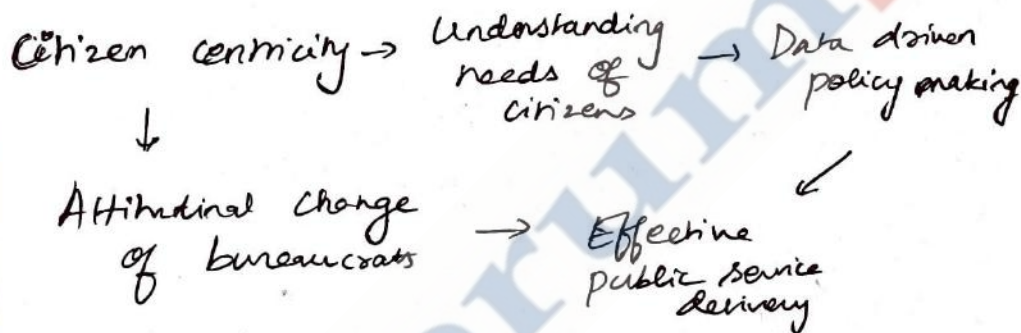 Citizen centricity → Understanding needs of citizens → Data driven policy making
↓
Attitudinal change of bureaucrats → Effective public service delivery
↙
rum